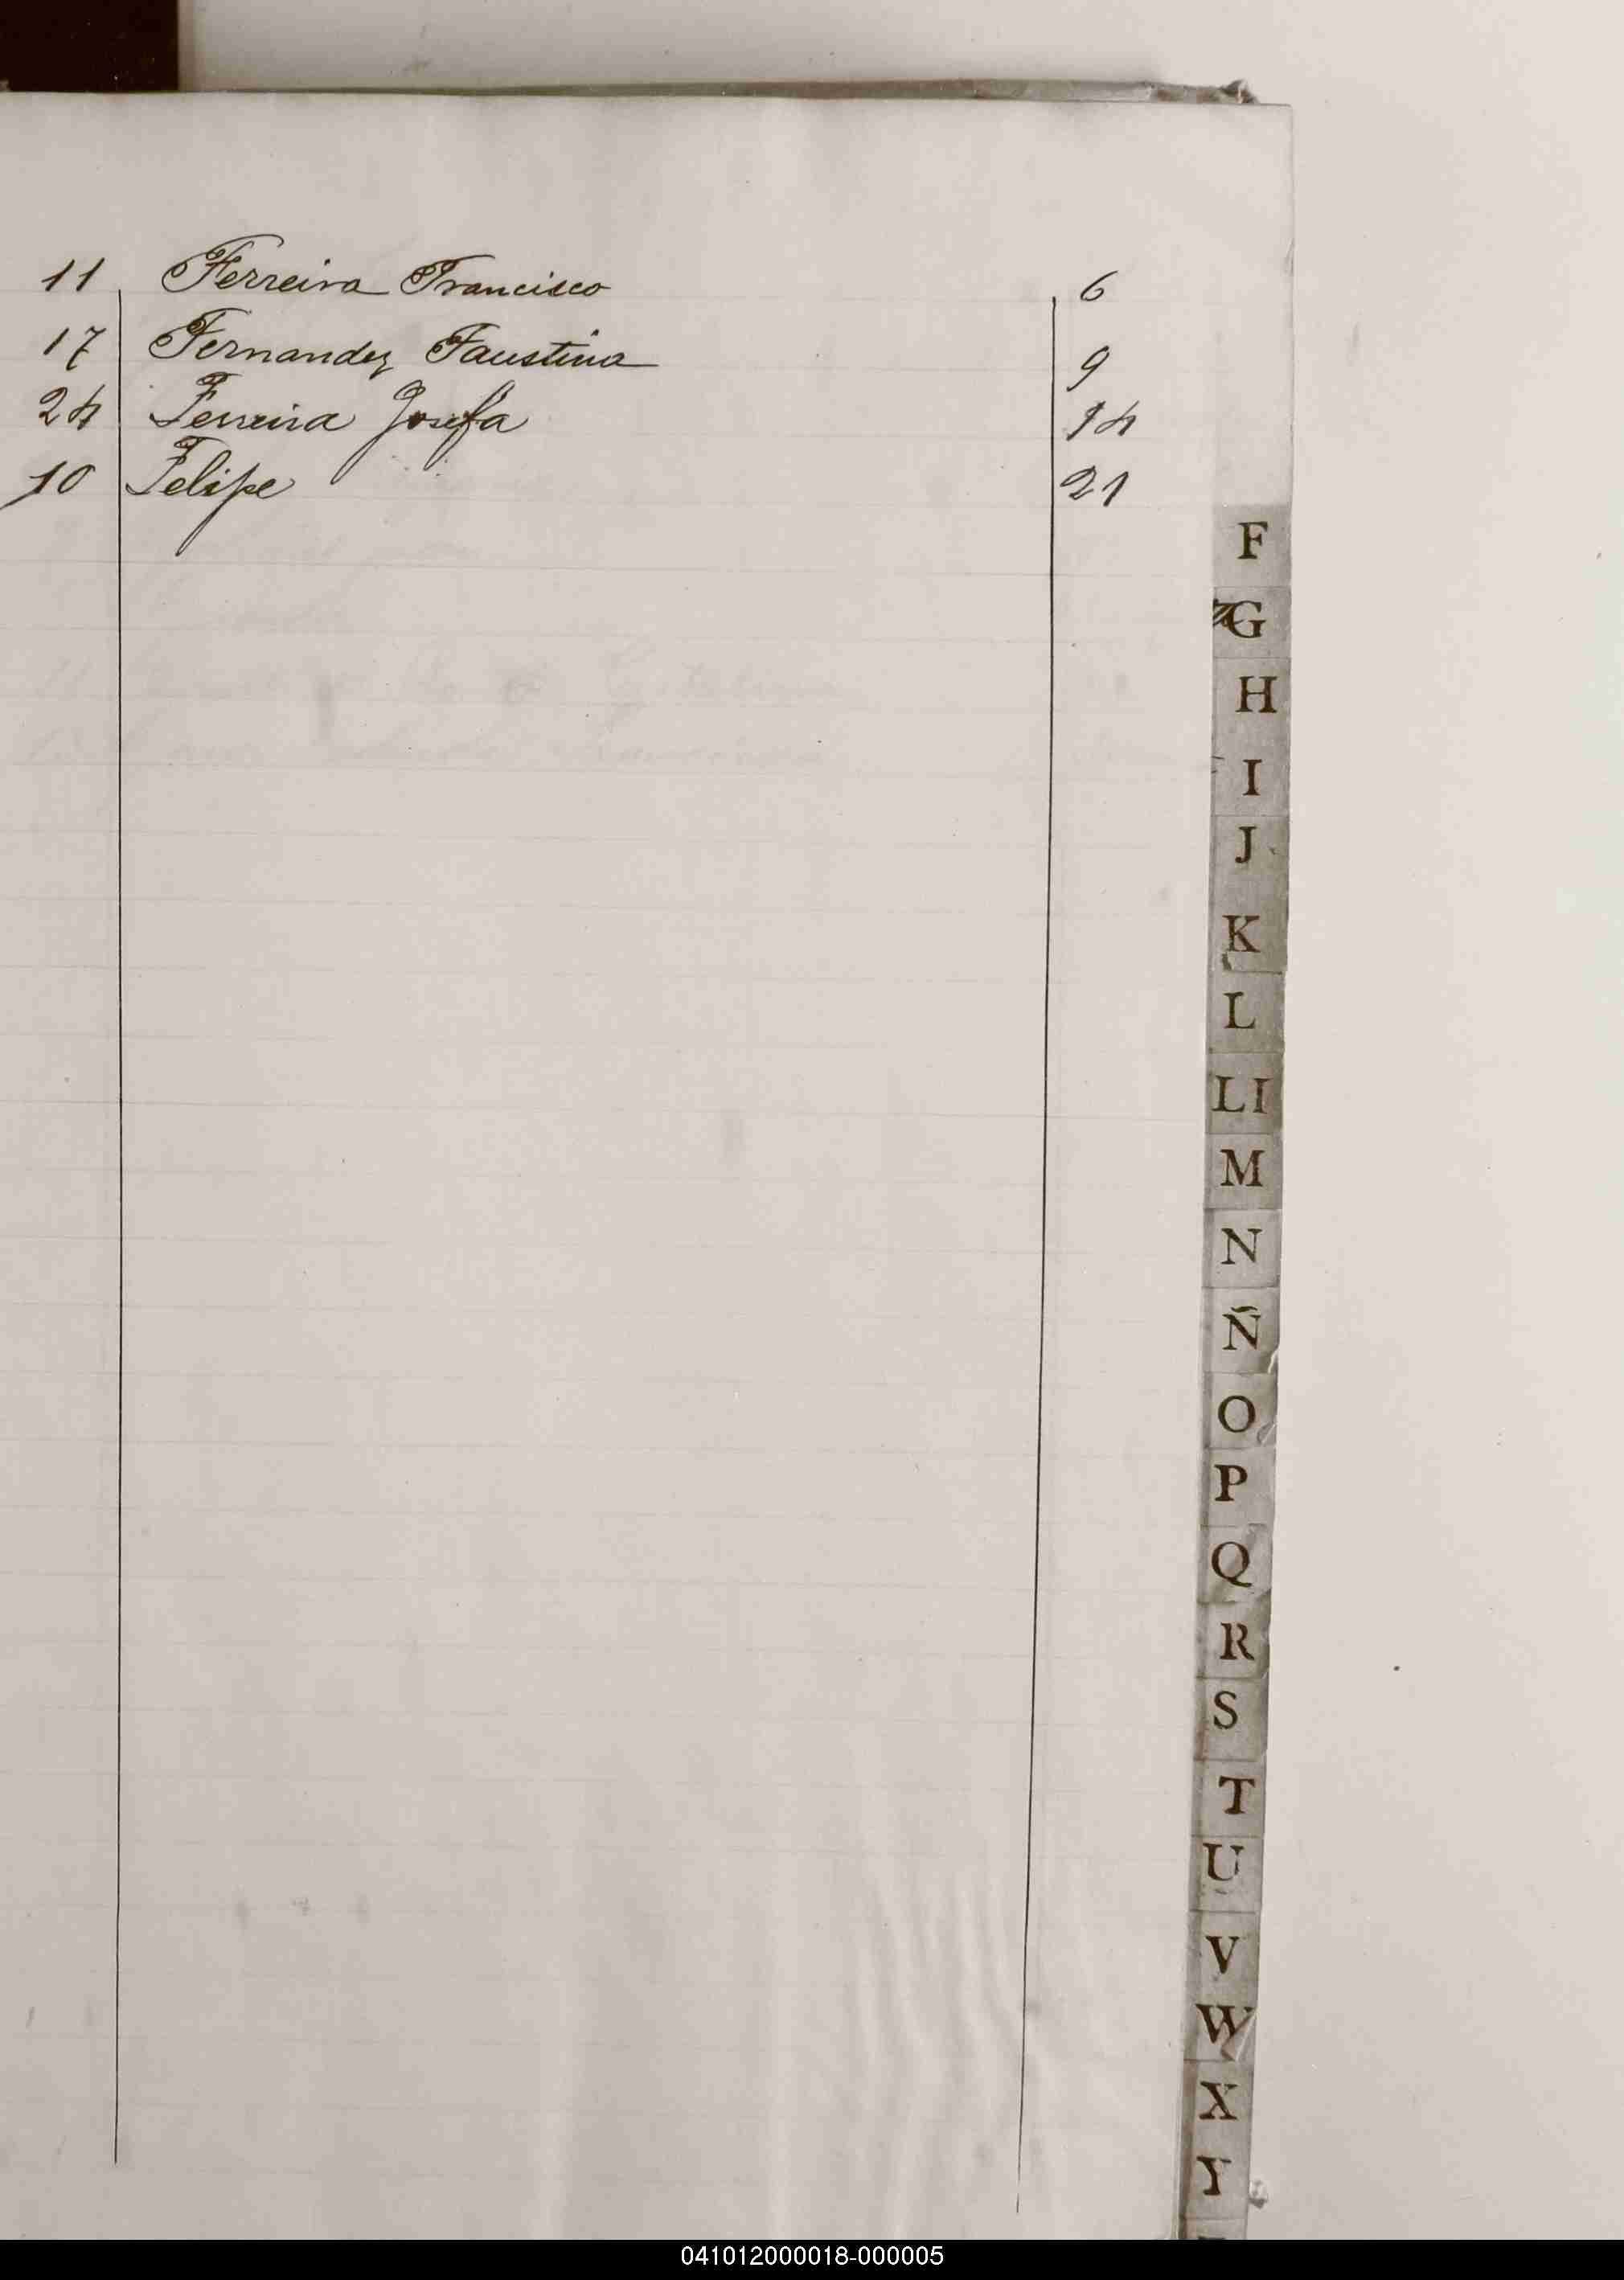 11 Ferreira Francisco 6
17 Fernandez Faustina 9
24 Ferreira Josefa 14
10 Felipe 21
F
G
H
I
J
K
L
Ll
M
N
Ñ
O
P
Q
R
S
T
U
V
W
X
Y
041012000018-000005